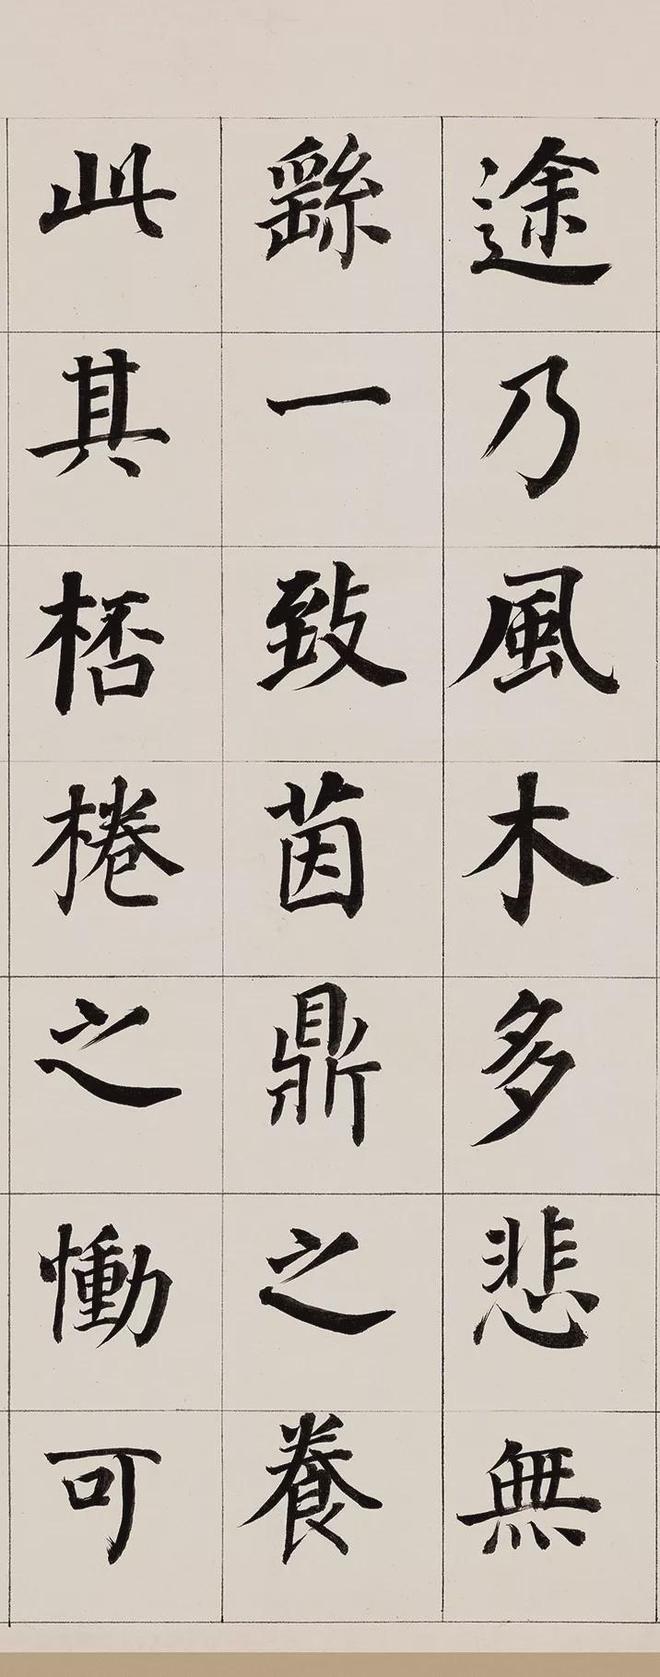 途乃風木多悲無
繇一致茵鼎之養
此其桮棬之慟可